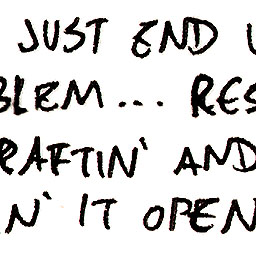 JUST END U
BLEM... RES
RAFTIN' AND
N' IT OPEN